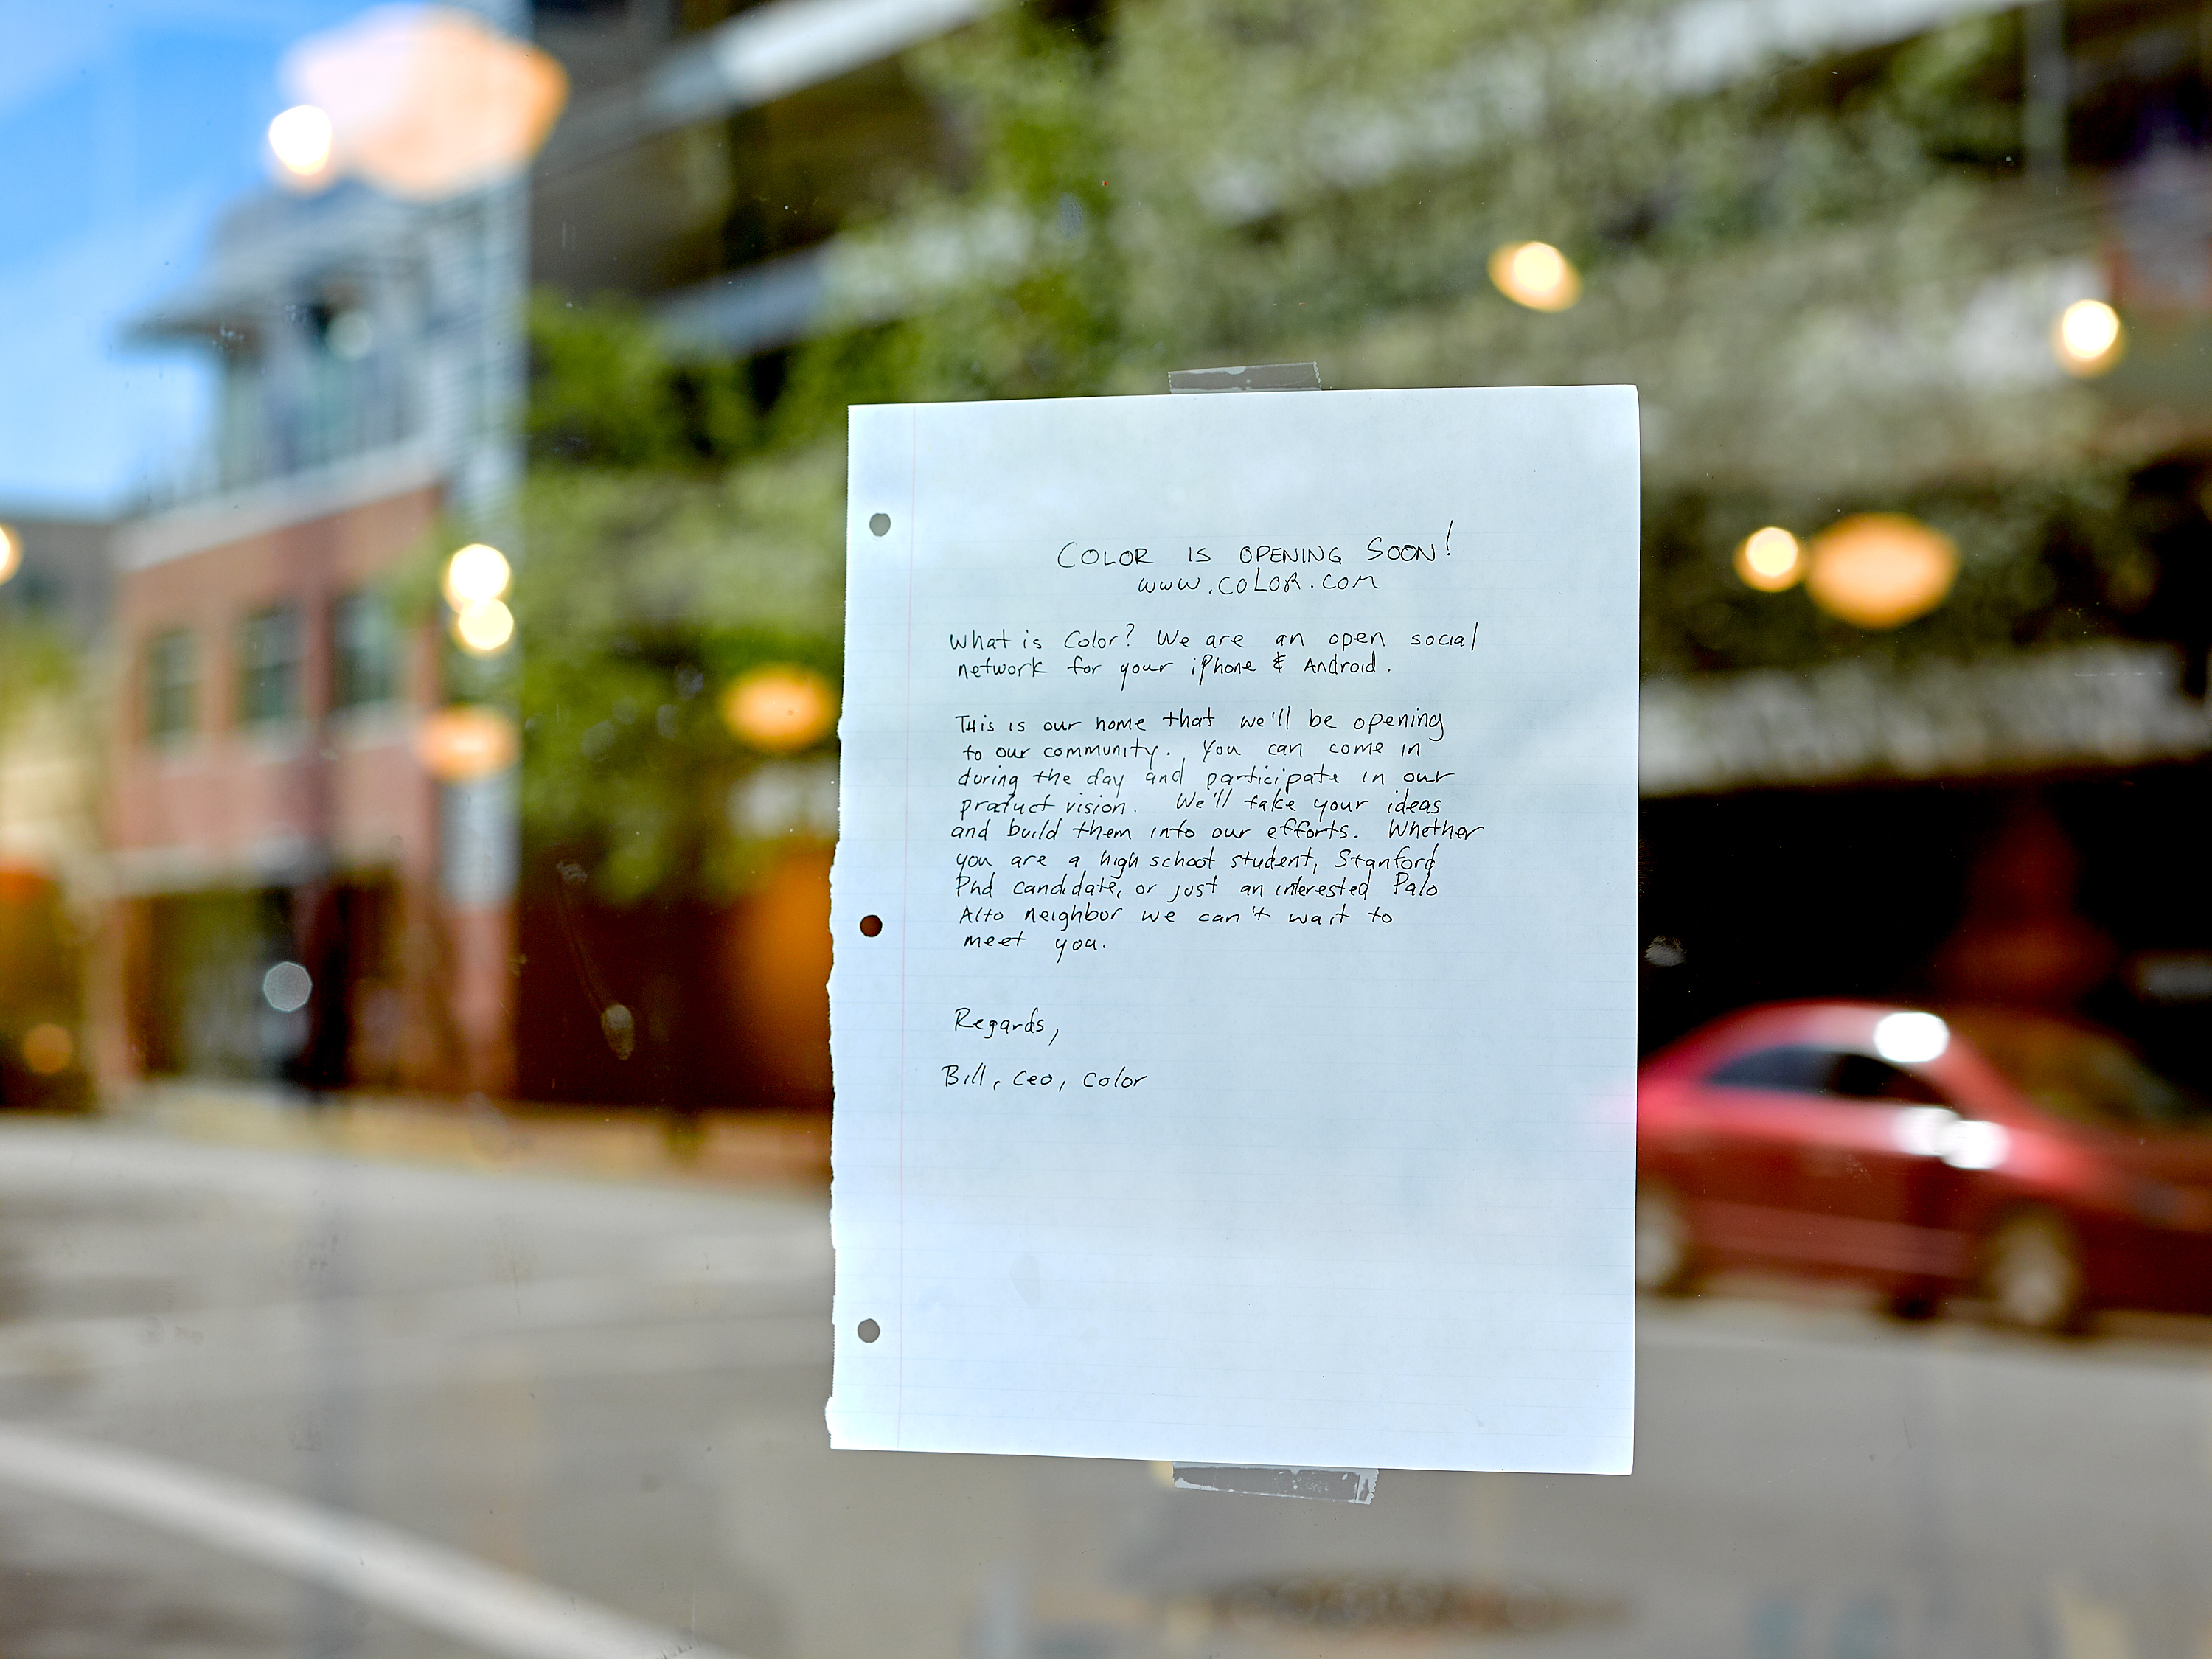 COLOR IS OPENING SOON!
www.COLOR.com
What is Color? We are an open social
network for your iPhone & Android.
This is our home that we'll be opening
to our community. You can come in
during the day and participate in our
product vision. We'll take your ideas
and build them into our efforts. Whether
you are a high school student, Stanford
Phd candidate, or just an interested Palo
Alto neighbor we can't wait to
meet you.
Regards,
Bill, CEO, Color